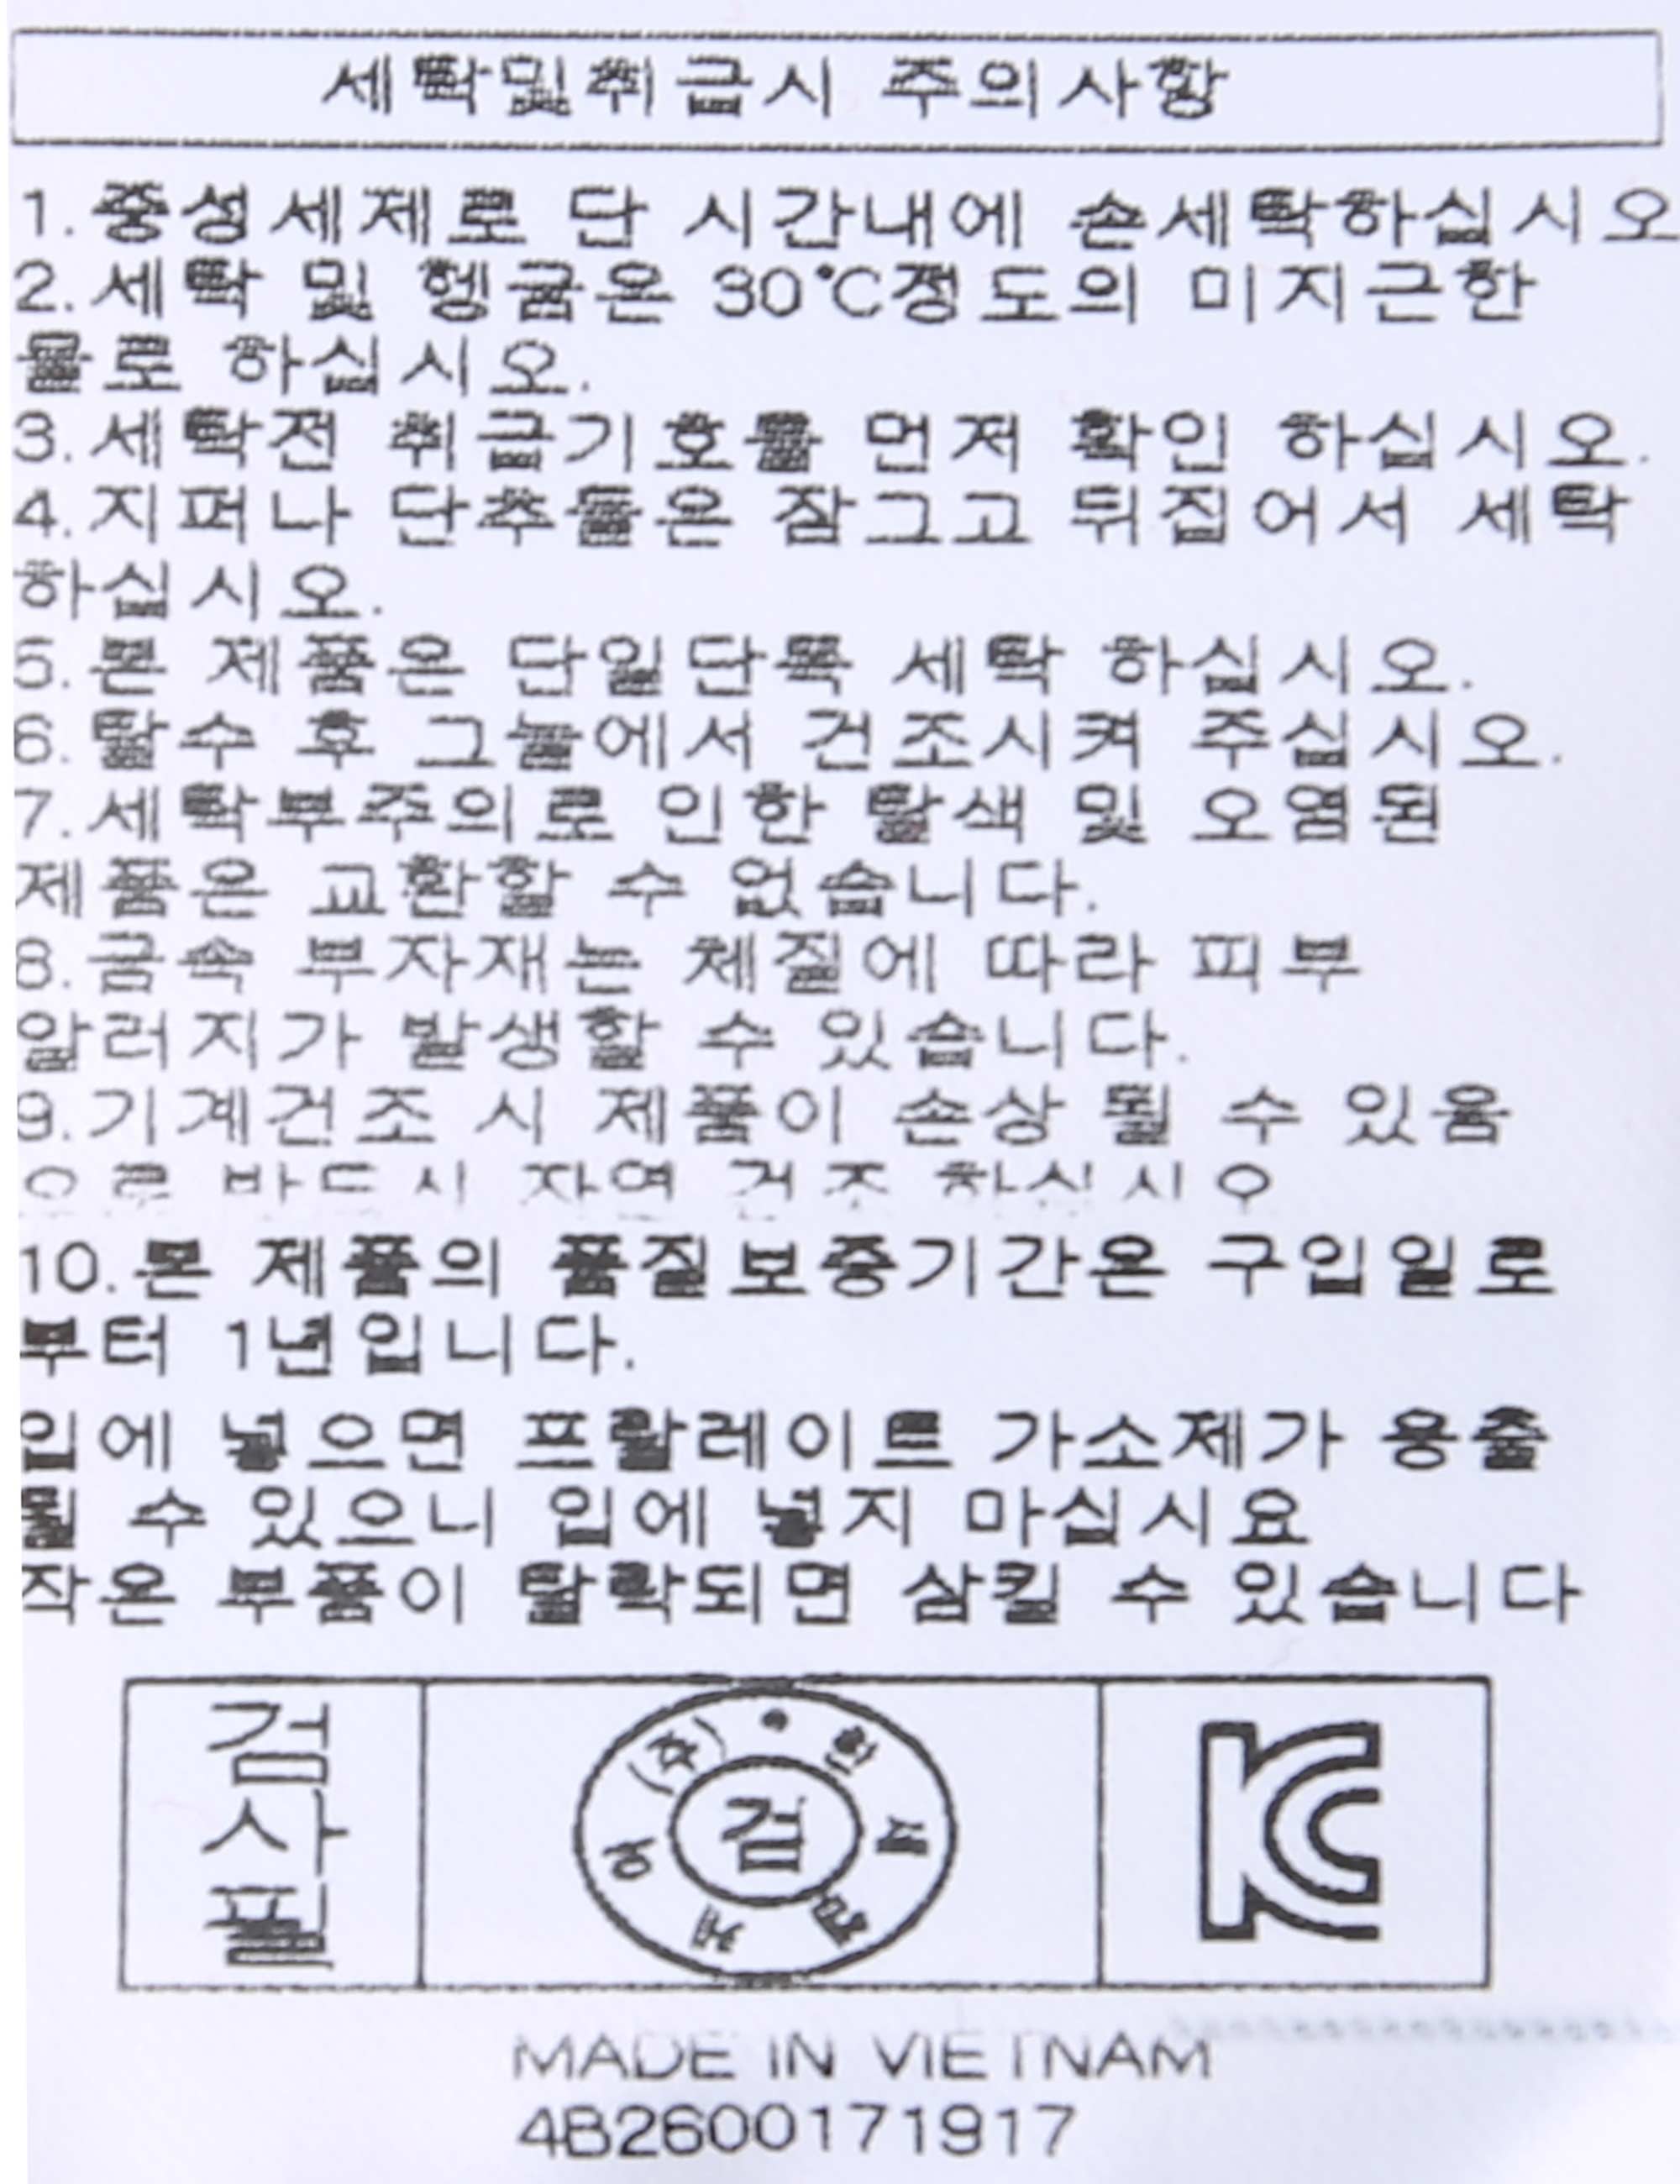 세탁및취급시 주의사항
1.중성세제로 단 시간내에 손세탁하십시오
2.세탁 및 헹굼은 30℃정도의 미지근한
물로 하십시오.
3.세탁전 취급기호를 먼저 확인 하십시오.
4.지퍼나 단추들은 잠그고 뒤집어서 세탁
하십시오.
5.본 제품은 단일단독 세탁 하십시오.
6.탈수 후 그늘에서 건조시켜 주십시오.
7.세탁부주의로 인한 탈색 및 오염된
제품은 교환할 수 없습니다.
8.금속 부자재는 체질에 따라 피부
알러지가 발생할 수 있습니다.
9.기계건조 시 제품이 손상 될 수 있음
으로 반드시 자연 건조 하십시오
10.본 제품의 품질보증기간은 구입일로
부터 1년입니다.
입에 넣으면 프탈레이트 가소제가 용출
될 수 있으니 입에 넣지 마십시요
작은 부품이 탈락되면 삼킬 수 있습니다
검사필
(주)
검
KC
MADE IN VIETNAM
4B2600171917